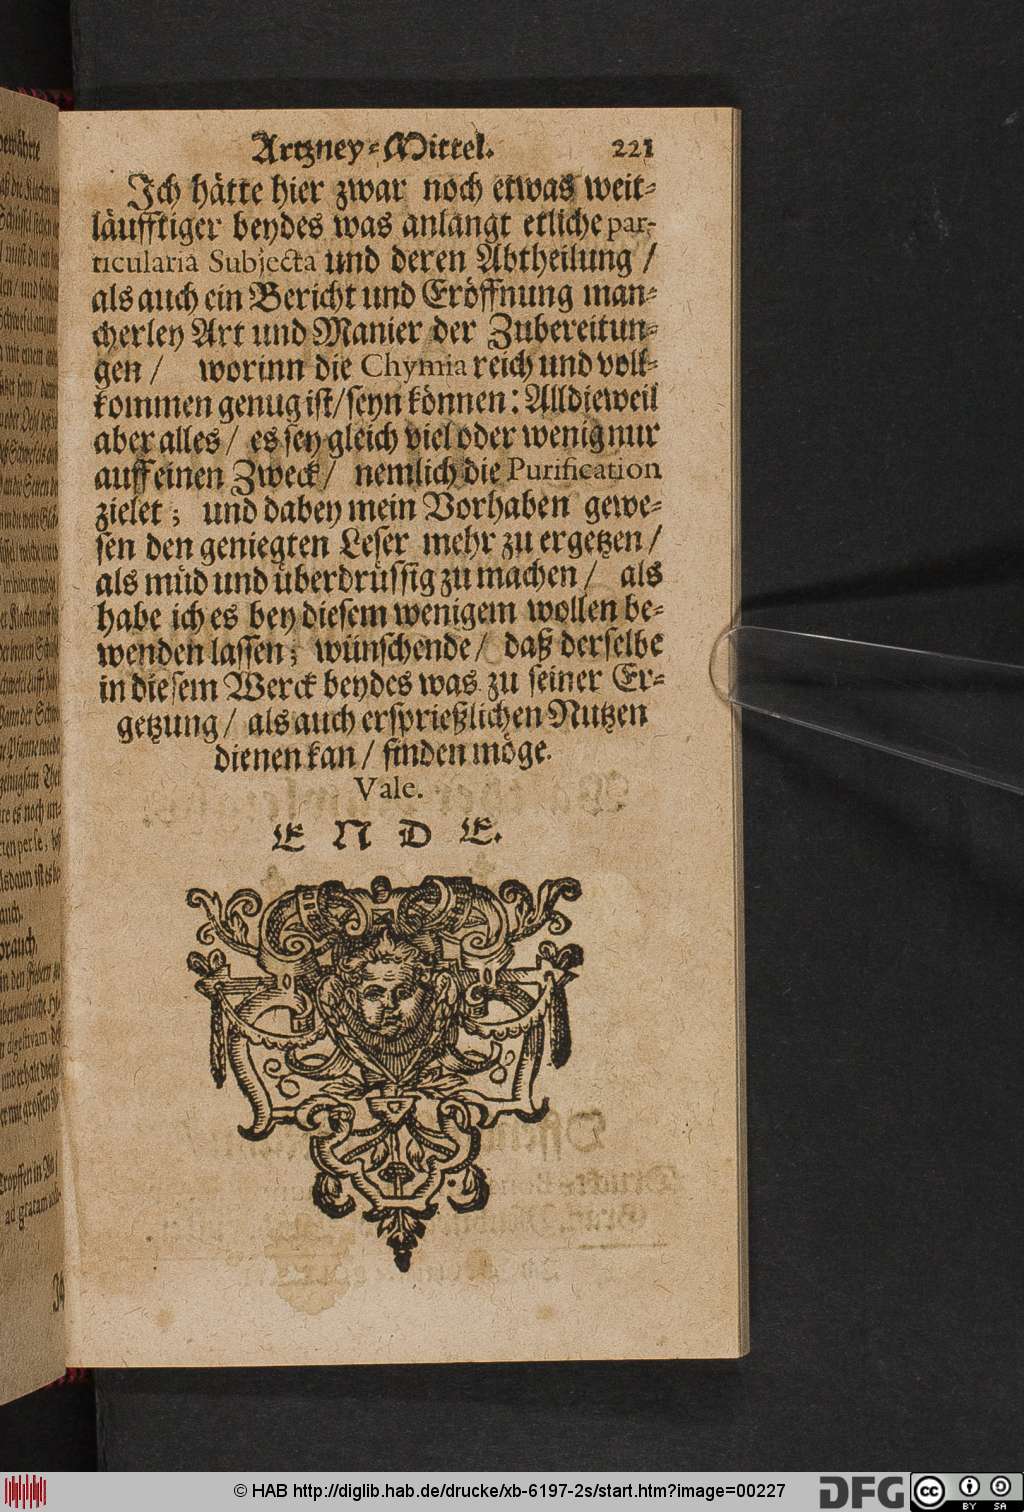 Artzney-Mittel. 221
Ich hätte hier zwar noch etwas weit-
läufftiger beydes was anlangt etliche par-
ticularia Subjecta und deren Abtheilung /
als auch ein Bericht und Eröffnung man-
cherley Art und Manier der Zubereitun-
gen / worinn die Chymia reich und voll-
kommen genug ist / seyn können: Alldieweil
aber alles / es sey gleich viel oder wenig nur
auff einen Zweck / nemlich die Purification
zielet; und dabey mein Vorhaben gewe-
sen den geniegten Leser mehr zu ergetzen /
als müd und überdrüssig zu machen / als
habe ich es bey diesem wenigem wollen be-
wenden lassen; wünschende / daß derselbe
in diesem Werck beydes was zu seiner Er-
getzung / als auch ersprießlichen Nutzen
dienen kan / finden möge.
Vale.
E N D E.
© HAB http://diglib.hab.de/drucke/xb-6197-2s/start.htm?image=00227
DFG
cc
BY SA